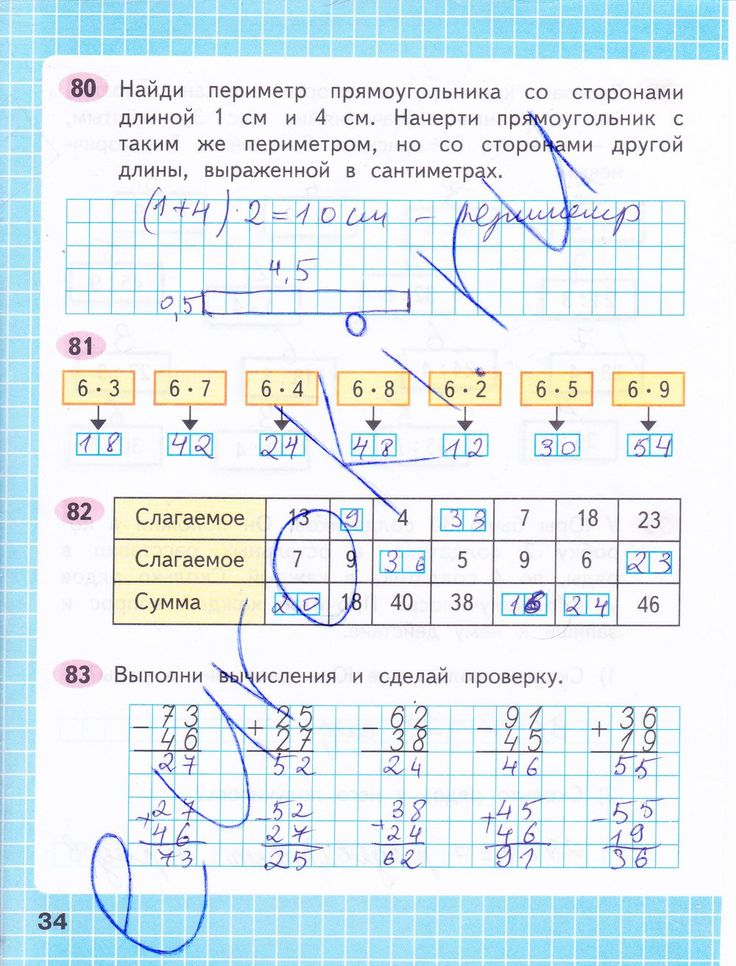 80 Найди периметр прямоугольника со сторонами
длиной 1 см и 4 см. Начерти прямоугольник с
таким же периметром, но со сторонами другой
длины, выраженной в сантиметрах.
(1+4)·2=10см – периметр
4,5
0,5
81
6·3 6·7 6·4 6·8 6·2 6·5 6·9
18 42 24 48 12 30 54
82 Слагаемое 13 9 4 33 7 18 23
Слагаемое 7 9 36 5 9 6 23
Сумма 20 18 40 38 16 24 46
83 Выполни вычисления и сделай проверку.
- 73 + 25 - 62 - 91 + 36
46 27 38 45 19
27 52 24 46 55
+ 27 - 52 + 38 + 45 - 55
46 27 24 46 19
73 25 62 91 36
34
e-uroki.ru